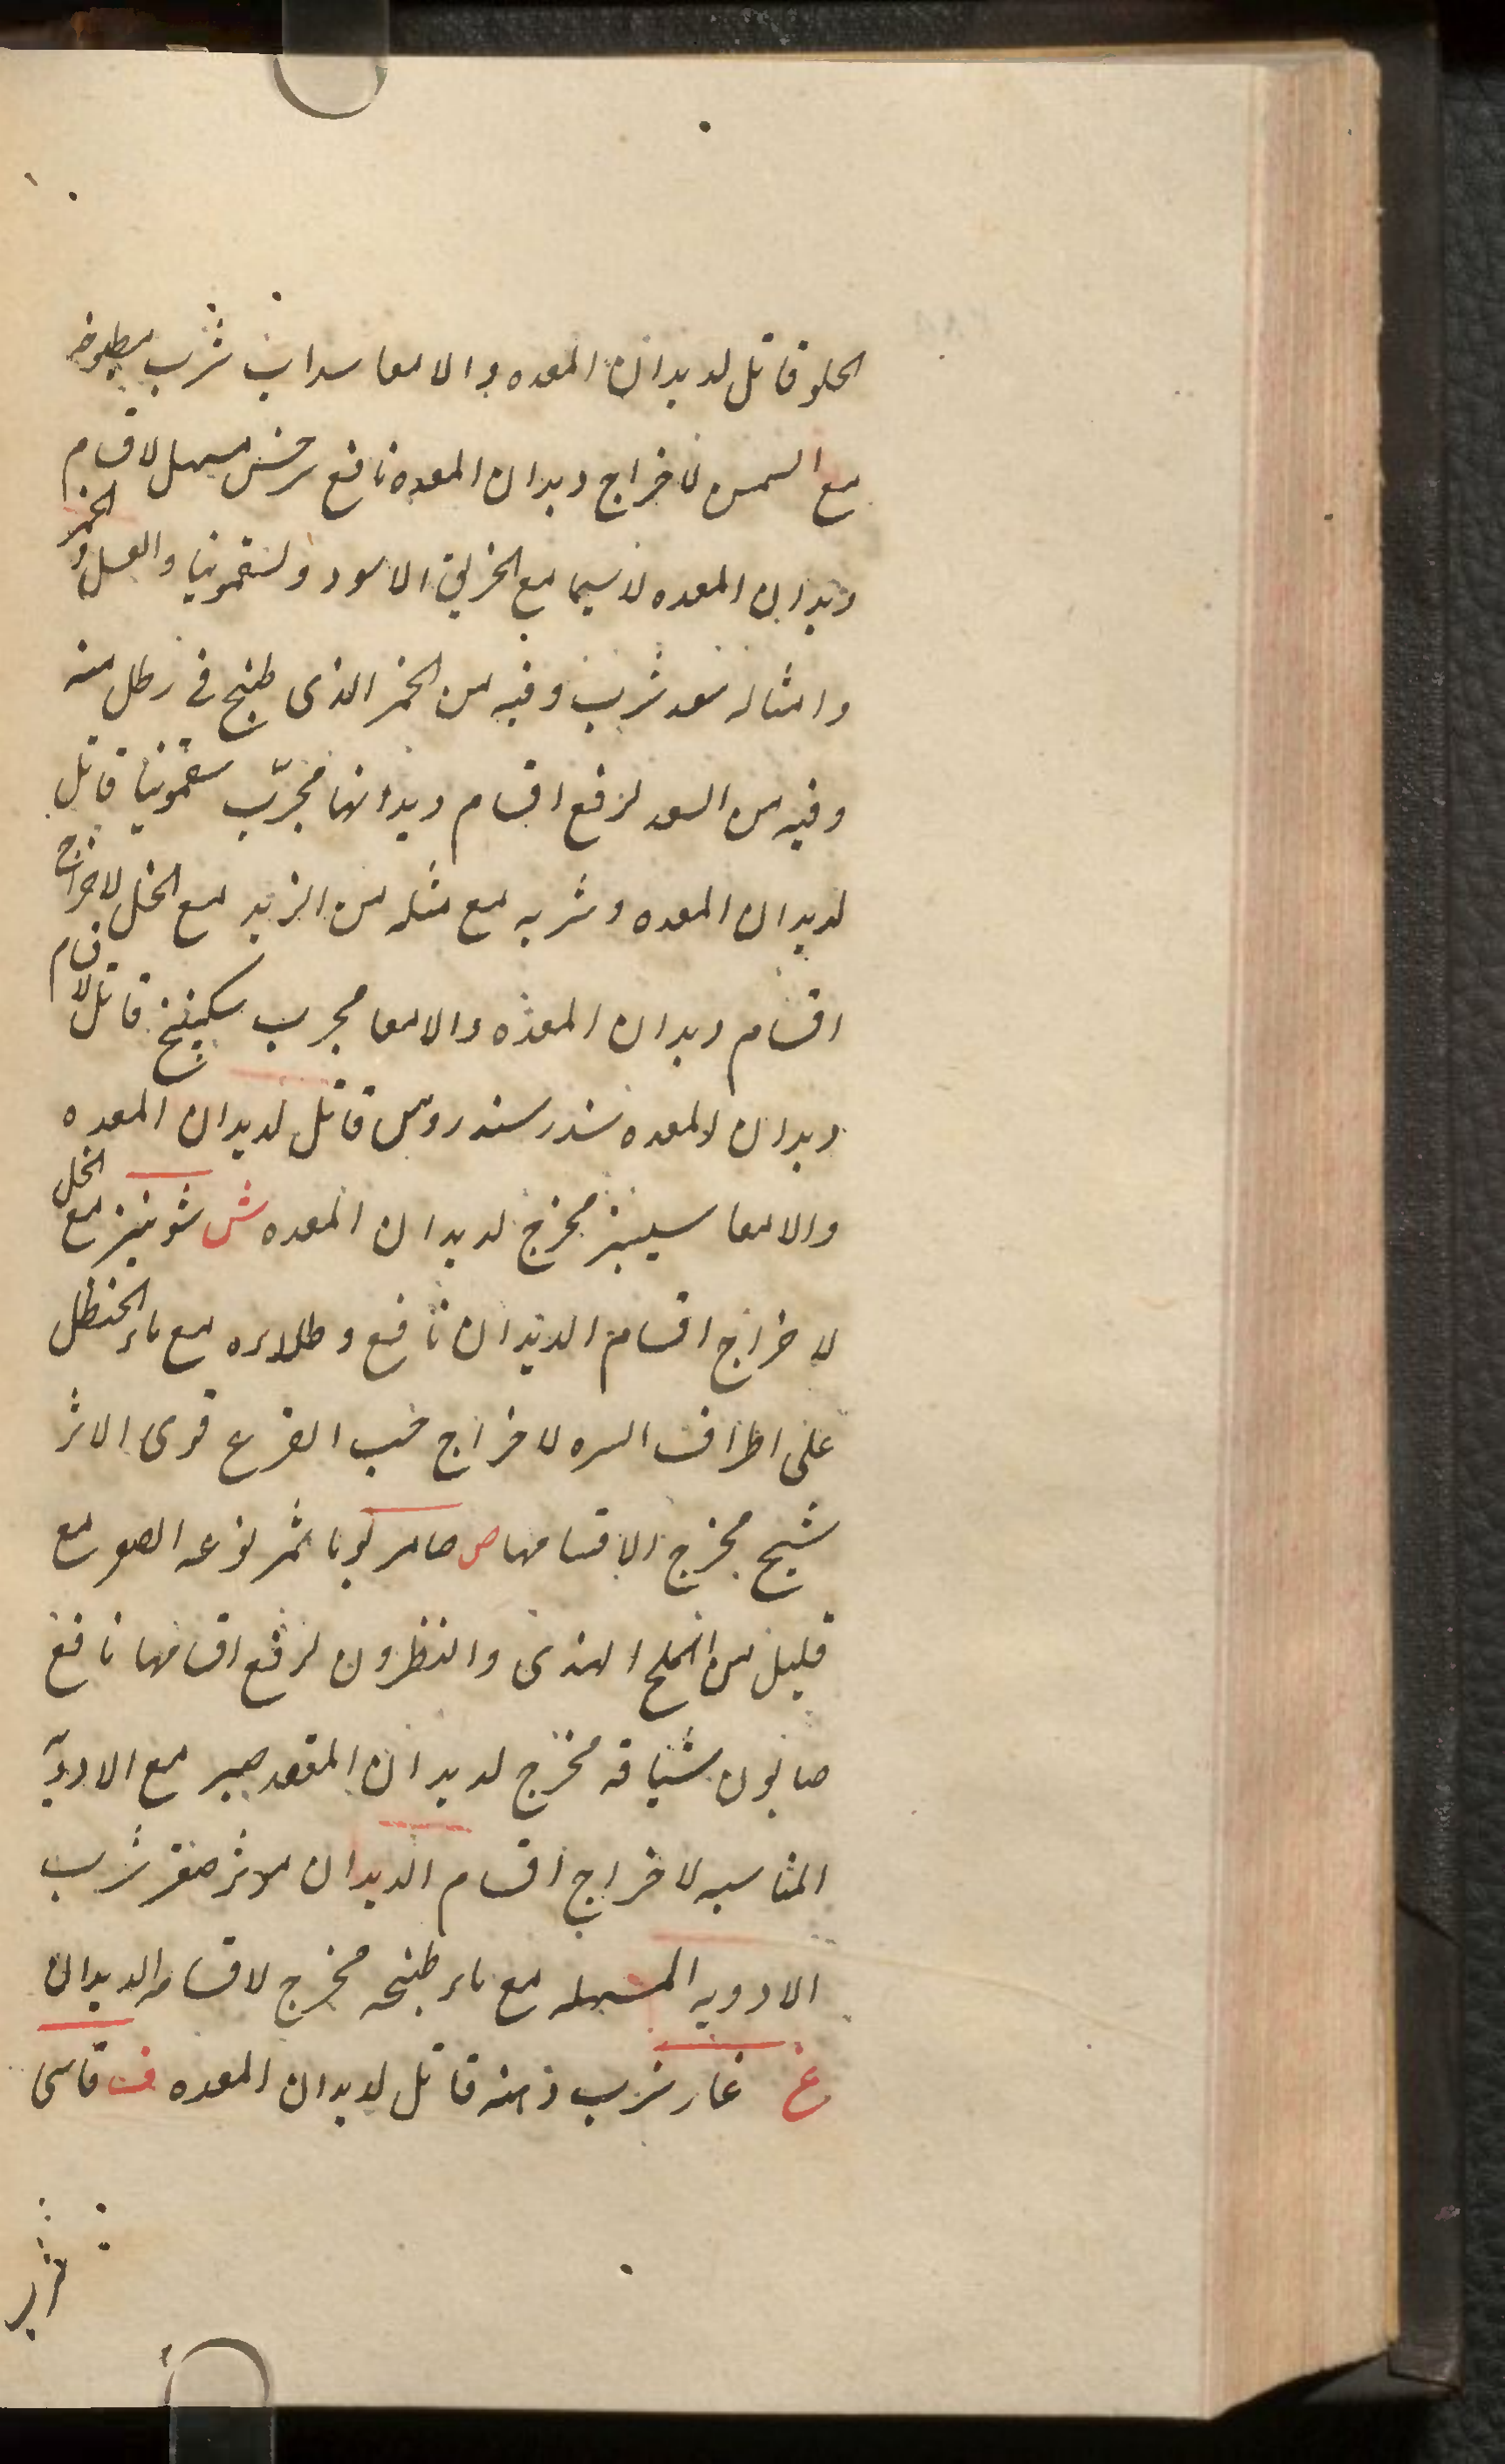 الحلو قاتل لديدان المعده والامعا سداب شرب مطبوخه
مع السمن لاخراج ديدان المعده نافع سرخس مسهل لاقسام
ديدان المعده لاسيما مع الخربق الاسود ولسقمونيا والعسل والخمر
وامثاله سعد شرب وقيه من الخمر الذى طبخ فى رطل منه
وقيه من السعد لرفع اقسام ديدانها مجرّب سقمونيا قاتل
لديدان المعده وشربه مع مثله من التربد مع الخل لاخراج
اقسام ديدان المعده والامعا مجرب سكبينج قاتل لاقسام
ديدان المعده سندرسندروس قاتل لديدان المعده
والامعا سيسنبر مخرج لديدان المعده ش شونيز مع الخل
لاخراج اقسام الديدان نافع وطلاءه مع ماء الحنظل
على اطراف السره لاخراج حب القرع قوى الاثر
شيح مخرج لاقسامها ص صامريوما ثمر نوعه الصغير مع
قليل من الملح الهندى والنطرون لرفع اقسامها نافع
صابون شيافه مخرج لديدان المقعد صبر مع الادويه
المناسبه لاخراج اقسام الديدان موثر صعتر شرب
الادويه المسهله مع ماء طبخه مخرج لاقسام الديدان
غ غار شرب دهنه قاتل لديدان المعده ف قاسى
شر